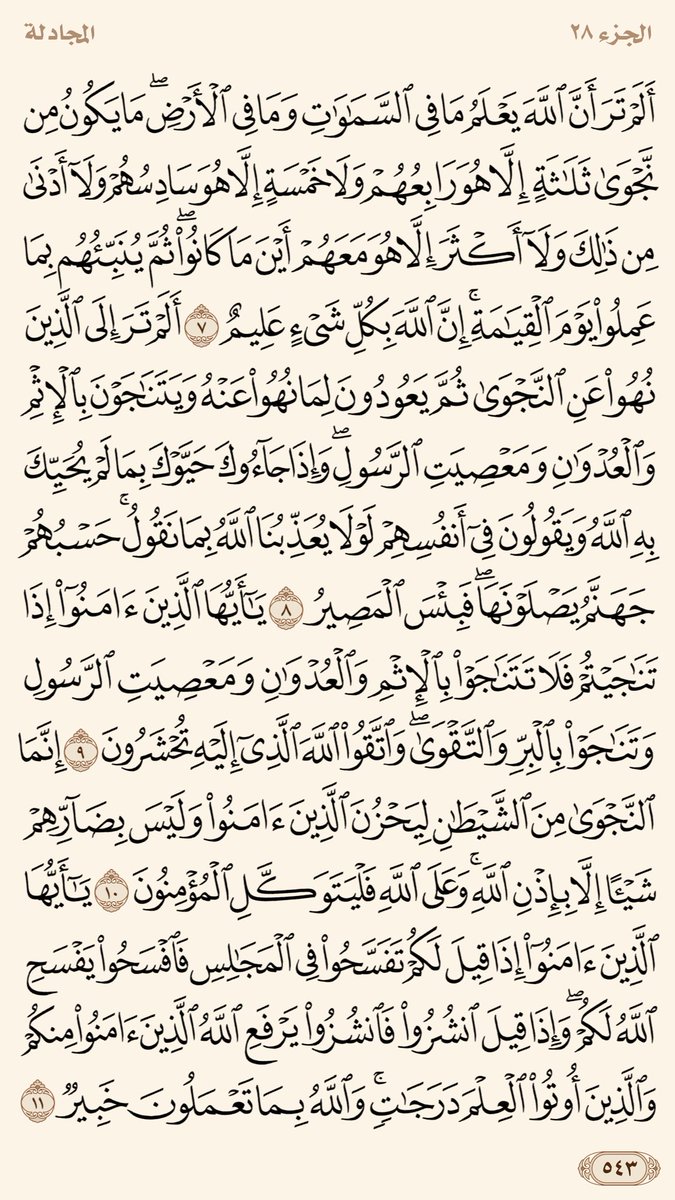 الجزء ٢٨
المجادلة
أَلَمۡ تَرَ أَنَّ ٱللَّهَ يَعۡلَمُ مَا فِي ٱلسَّمَٰوَٰتِ وَمَا فِي ٱلۡأَرۡضِۖ مَا يَكُونُ مِن
نَّجۡوَىٰ ثَلَٰثَةٍ إِلَّا هُوَ رَابِعُهُمۡ وَلَا خَمۡسَةٍ إِلَّا هُوَ سَادِسُهُمۡ وَلَآ أَدۡنَىٰ
مِن ذَٰلِكَ وَلَآ أَكۡثَرَ إِلَّا هُوَ مَعَهُمۡ أَيۡنَ مَا كَانُواْۖ ثُمَّ يُنَبِّئُهُم بِمَا
عَمِلُواْ يَوۡمَ ٱلۡقِيَٰمَةِۚ إِنَّ ٱللَّهَ بِكُلِّ شَيۡءٍ عَلِيمٌ ٧ أَلَمۡ تَرَ إِلَى ٱلَّذِينَ
نُهُواْ عَنِ ٱلنَّجۡوَىٰ ثُمَّ يَعُودُونَ لِمَا نُهُواْ عَنۡهُ وَيَتَنَٰجَوۡنَ بِٱلۡإِثۡمِ
وَٱلۡعُدۡوَٰنِ وَمَعۡصِيَتِ ٱلرَّسُولِۖ وَإِذَا جَآءُوكَ حَيَّوۡكَ بِمَا لَمۡ يُحَيِّكَ
بِهِ ٱللَّهُ وَيَقُولُونَ فِيٓ أَنفُسِهِمۡ لَوۡلَا يُعَذِّبُنَا ٱللَّهُ بِمَا نَقُولُۚ حَسۡبُهُمۡ
جَهَنَّمُ يَصۡلَوۡنَهَاۖ فَبِئۡسَ ٱلۡمَصِيرُ ٨ يَٰٓأَيُّهَا ٱلَّذِينَ ءَامَنُوٓاْ إِذَا
تَنَٰجَيۡتُمۡ فَلَا تَتَنَٰجَوۡاْ بِٱلۡإِثۡمِ وَٱلۡعُدۡوَٰنِ وَمَعۡصِيَتِ ٱلرَّسُولِ
وَتَنَٰجَوۡاْ بِٱلۡبِرِّ وَٱلتَّقۡوَىٰۖ وَٱتَّقُواْ ٱللَّهَ ٱلَّذِيٓ إِلَيۡهِ تُحۡشَرُونَ ٩ إِنَّمَا
ٱلنَّجۡوَىٰ مِنَ ٱلشَّيۡطَٰنِ لِيَحۡزُنَ ٱلَّذِينَ ءَامَنُواْ وَلَيۡسَ بِضَآرِّهِمۡ
شَيۡـًٔا إِلَّا بِإِذۡنِ ٱللَّهِۚ وَعَلَى ٱللَّهِ فَلۡيَتَوَكَّلِ ٱلۡمُؤۡمِنُونَ ١٠ يَٰٓأَيُّهَا
ٱلَّذِينَ ءَامَنُوٓاْ إِذَا قِيلَ لَكُمۡ تَفَسَّحُواْ فِي ٱلۡمَجَٰلِسِ فَٱفۡسَحُواْ يَفۡسَحِ
ٱللَّهُ لَكُمۡۖ وَإِذَا قِيلَ ٱنشُزُواْ فَٱنشُزُواْ يَرۡفَعِ ٱللَّهُ ٱلَّذِينَ ءَامَنُواْ مِنكُمۡ
وَٱلَّذِينَ أُوتُواْ ٱلۡعِلۡمَ دَرَجَٰتٖۚ وَٱللَّهُ بِمَا تَعۡمَلُونَ خَبِيرٞ ١١
٥٤٣